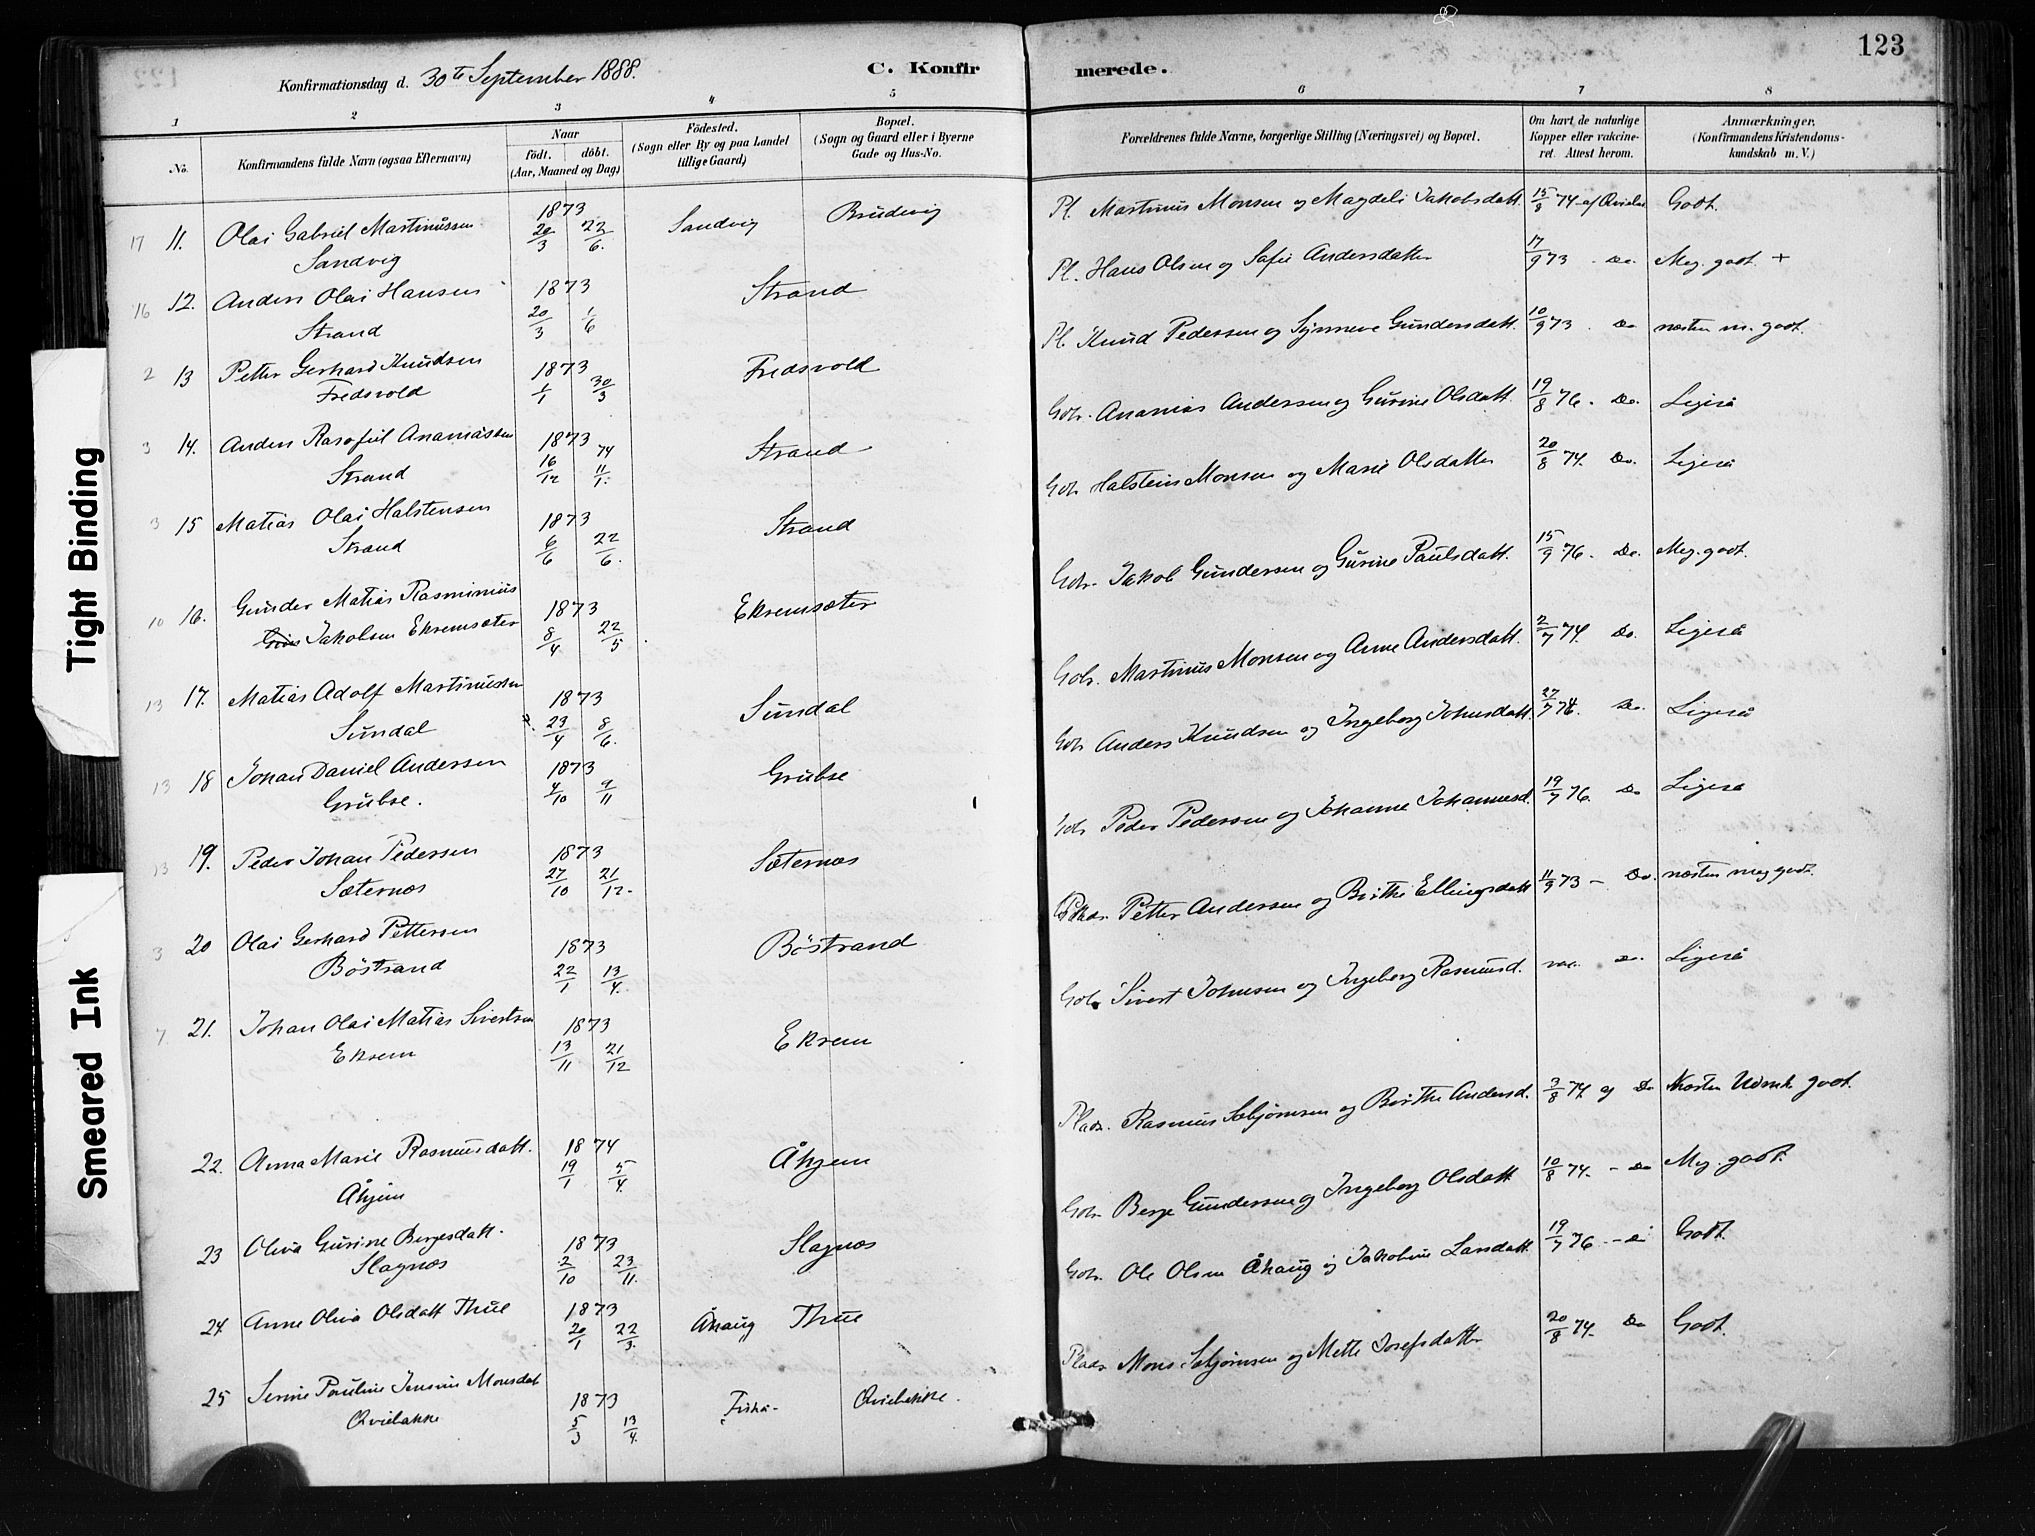 123
Konfirmationsdag d. 30te September 1888.
C. Konfirmerede.
1 2 3 4 5 6 7 8
No.
Konfirmandens fulde Navn (ogsaa Efternavn)
Naar
födt. döbt.
(Aar, Maaned og Dag)
Födested.
(Sogn eller By og paa Landet
tillige Gaard)
Bopæl.
(Sogn og Gaard eller i Byerne
Gade og Hus-No.
Forældrenes fulde Navne, borgerlige Stilling (Næringsvei) og Bopæl.
Om havt de naturlige
Kopper eller vakcine-
ret. Attest herom.
Anmærkninger,
(Konfirmandens Kristendoms-
kundskab m. V.)
17 11. Olai Gabriel Martinussen 1873 20/3 22/6. Sandvig Brudevig Pl. Martinus Monsen og Magdeli Jakobsdatt. 15/8 74 af Godt.
Sandvig
16 12. Anders Olai Hansen 1873 20/3 1/6 Strand Pl. Hans Olsen og Sofie Andersdatter 17/9 73 - Do. Meg. godt. +
Strand
2 13 Petter Gerhard Knudsen 1873 1/1 30/3 Fredsvold Pl. Knud Pedersen og Synneve Gundersdatt. 10/9 73. Do næsten m. godt.
Fredsvold
3 14. Anders Rasofiel Ananiassen 1873 16/12 74 11/1. Strand Gbr. Ananias Andersen og Gurine Olsdatt. 19/8 76. Do. Ligeså
Strand
3 15 Matias Olai Halstensen 1873 6/6 22/6. Strand Gbr Halstein Monsen og Marie Olsdatter 20/8 74. Do. Ligeså
Strand
10 16. Gunder Matias Rasminius 1873 8/4 22/5 Ekremsæter Gbr. Jakob Gundersen og Gurine Paulsdatt. 15/9 76. Do. Meg. godt.
Jakobsen Ekremsæter
13 17. Matias Adolf Martinussen 1873 23/4 8/6. Sundal Gbr. Martinus Monsen og Anne Andersdatt. 2/7 74. Do. Ligeså
Sundal
13 18 Johan Daniel Andersen 1873 4/10 9/11 Grubse Gbr Anders Knudsen og Ingeborg Johnsdatt. 27/7 74. Do. Ligeså
Grubse.
13 19. Peder Johan Pedersen 1873 27/10 21/12. Sæternæs Gbr Peder Pedersen og Johanne Johannesd. 19/7 76. Do Ligeså
Sæternæs
3 20 Olai Gerhard Pettersen 1873 22/1 13/4. Böstrand Petter Andersen og Birthe Ellingsdatt 11/9 73 - Do. næsten meg godt.
Böstrand
7 21. Johan Olai Matias Sivertsen 1873 13/11 21/12 Ekrem Gbr. Sivert Johnsen og Ingeborg Rasmusd. vac. Do. Ligeså
Ekrem
22. Anna Marie Rasmusdatt. 1874 19/1 5/4. Åhjem Plads. Rasmus Sebjørnsen og Birthe Andersd. 3/8 74 af Do Næsten Udmk godt.
Åhjem
23 Oliva Gurine Bergesdatt. 1873 2/10 23/11. Slagnæs Gbr Berge Gundersen og Ingeborg Olsdatt 10/8 74. - Do Meg. godt.
Slagnæs
24. Anne Oliva Olsdatt Thue 1873 20/1 22/3. Åhaug Thue Gbr. Ole Olsen Åhaug og Jakobine Larsdatt. 19/7 76 - Do Godt.
25 Serine Pauline Jensine Monsdat 1873 5/3 13/4. Qvilebakke. Plads Mons Sebjørnsen og Mette Josefsdatter 20/8 74. Do Godt.
Qvilebakke
Tight Binding
Smeared Ink